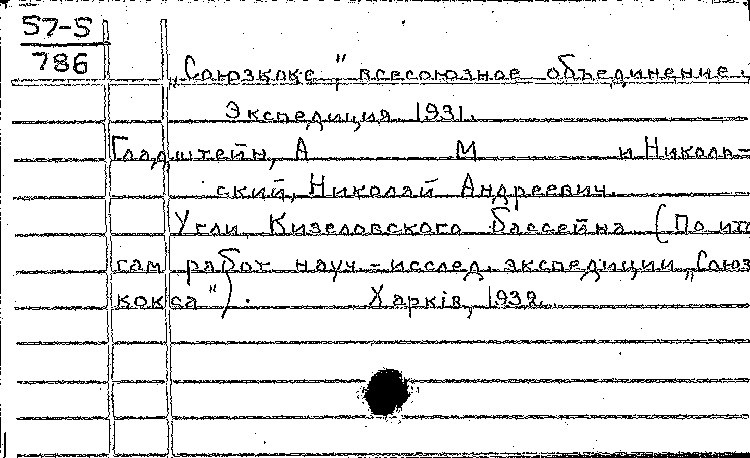 57-5
786
„Союзкокс", всесоюзное объединение.
Экспедиция 1931.
Гладштейн, А М и Николь-
ский, Николай Андреевич.
Угли Кизеловского бассейна (По ит
гам работ науч.-исслед. экспедиции „Союз
кокса"). Харкiв, 1932.